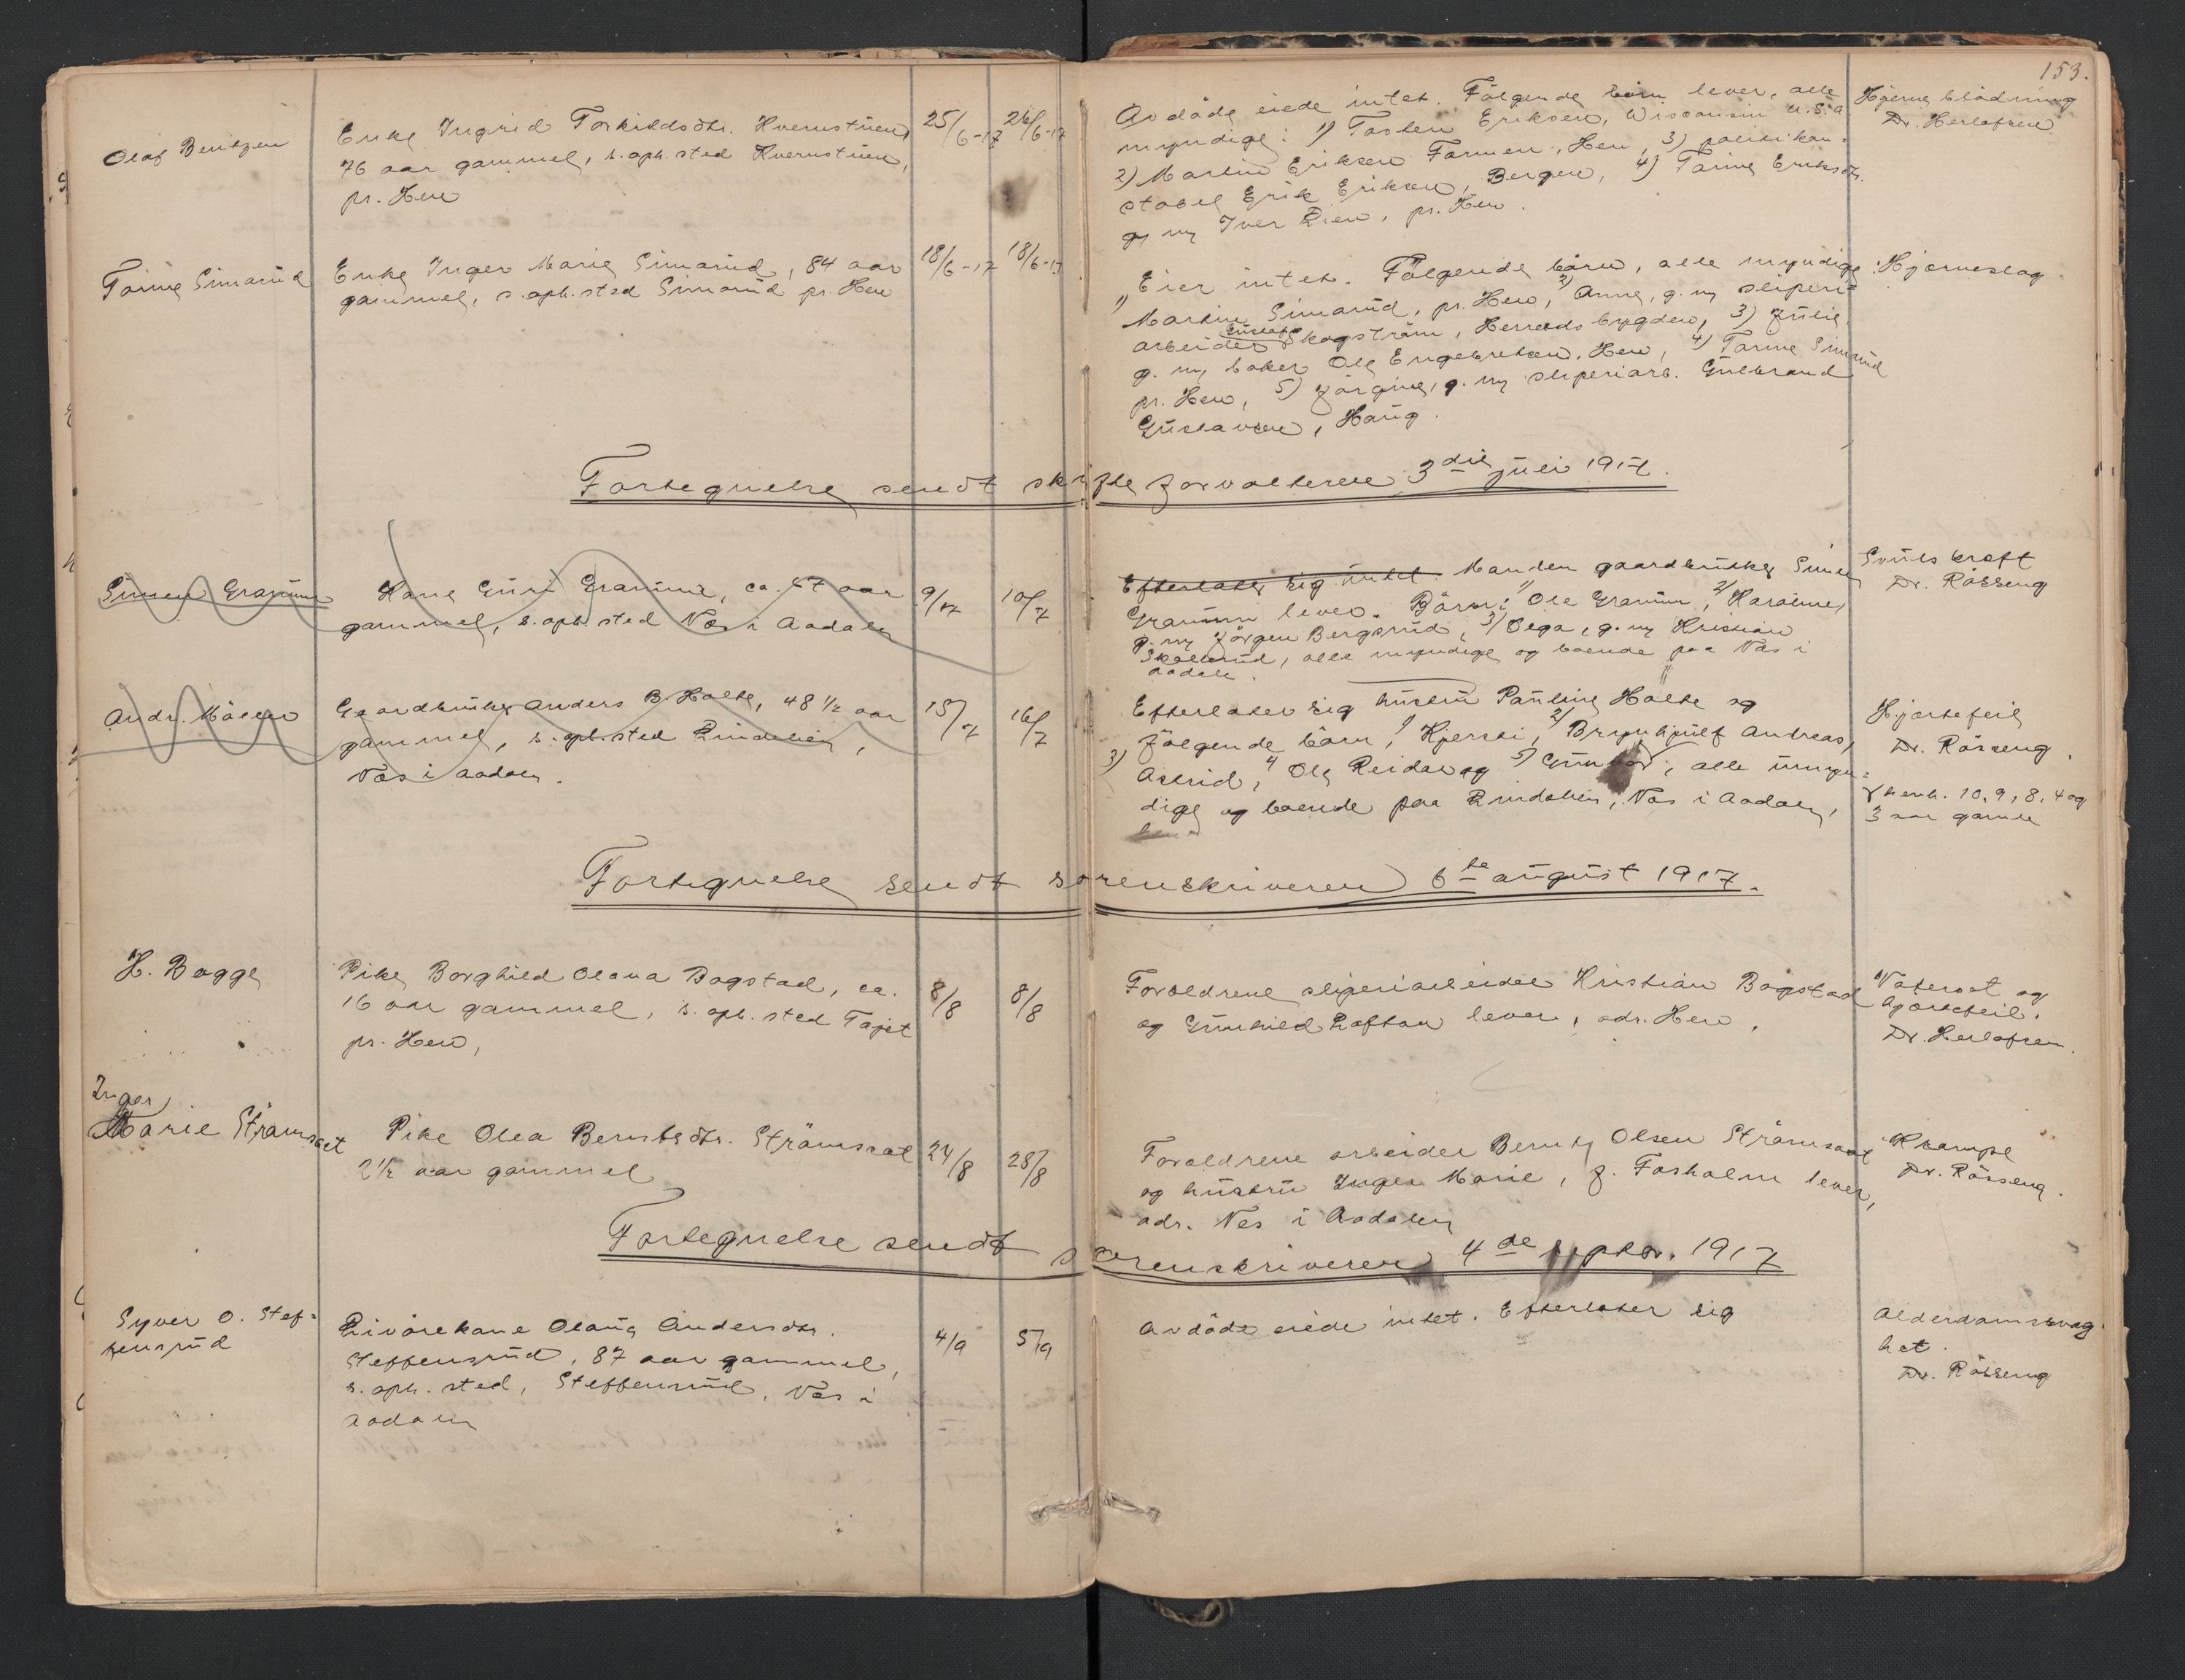 153.
Olaf Bentzen
Enke Ingrid Torkildsdtr. Kvernstuen,
76 aar gammel, s. oph. sted Kvernstuen,
pr. Hen
25/6-17
26/6-17
Avdöde eiede intet. Fölgende börn lever, alle
myndige: 1) Tosten Eriksen, Wisconsin U.S.A
2) Martin Eriksen Tormen, Hen, 3) politikon=
stabel Erik Eriksen, Bergen, 4) Torine Eriksdtr.
g. m. Iver Lien, pr. Hen.
Hjerneblödning
Dr. Herlofsen
Torine Simarud
Enke Inger Marie Simarud, 84 aar
gammel, s. oph. sted Simarud pr. Hen
18/6-17
18/6-17
Eier intet. Fölgende börn, alle myndige:
1) Martin Simarud, pr. Hen, 2) Anne, g. m. sliperi=
arbeider Gustaf Skogström, Heradsbygden, 3) Julie,
g. m. baker Ole Engebretsen, Hen, 4) Torine Simarud
pr. Hen, 5) Jörgine, g. m. sliperiarb. Gulbrand
Gustavsen, Haug.
Hjerneslag
Fortegnelse sendt skifteforvalteren 3die juli 1917.
Simen Granum
Kone Guri Granum, ca. 67 aar
gammel, s. oph. sted Nes i Aadalen
9/7
10/7
Efterlater sig intet. Manden gaardbruker Simen
Granum lever. Börn: 1) Ole Granum, 2) Karoline,
g. m. Jörgen Bergsrud, 3) Olga, g. m. Kristian
Skollerud, alle myndige og boende paa Nes i
Aadalen.
Dr. Rösseng
Andr. Moen
Gaardbruker Anders B. Holte, 48 1/2 aar
gammel, s. oph. sted Lindelien,
Nes i Aadalen.
15/7
16/7
Efterlater sig hustru Pauline Holte og
fölgende börn, 1) Kjersti, 2) Brynhjulf Andreas,
3) Astrid, 4) Ole Reidar og 5) Gunvor, alle umyn=
dige og boende paa Lindelien, Nes i Aadalen,
Hjertefeil
Dr. Rösseng.
henh. 10, 9, 8, 4 og
3 aar gamle
Fortegnelse sendt sorenskriveren 6te august 1917.
H. Bogge
Pike Borghild Olava Bagstad, ca.
16 aar gammel, s. oph. sted Tajet
pr. Hen,
8/8
8/8
Foreldrene sliperiarbeider Kristian Bagstad
og Gunhild Loftan lever, adr. Hen.
Vatersot og
hjertefeil.
Dr. Herlofsen.
Inger
Marie Strömsaet
Pike Olea Berntsdtr. Strömsaet
2 1/2 aar gammel
24/8
28/8
Foreldrene arbeider Bernt Olsen Strömsaet
og hustru Inger Marie, f. Fosholm lever,
adr. Nes i Aadalen
Krampe
Dr. Rösseng.
Fortegnelse sendt sorenskriveren 4de septbr. 1917
Syver O. Stef=
fensrud
Livörekone Olaug Andersdtr.
Steffensrud, 87 aar gammel,
s. oph. sted, Steffensrud, Nes i
Aadalen
4/9
5/9
Avdöde eiede intet. Efterlater sig
Alderdomssvag
het.
Dr. Rösseng